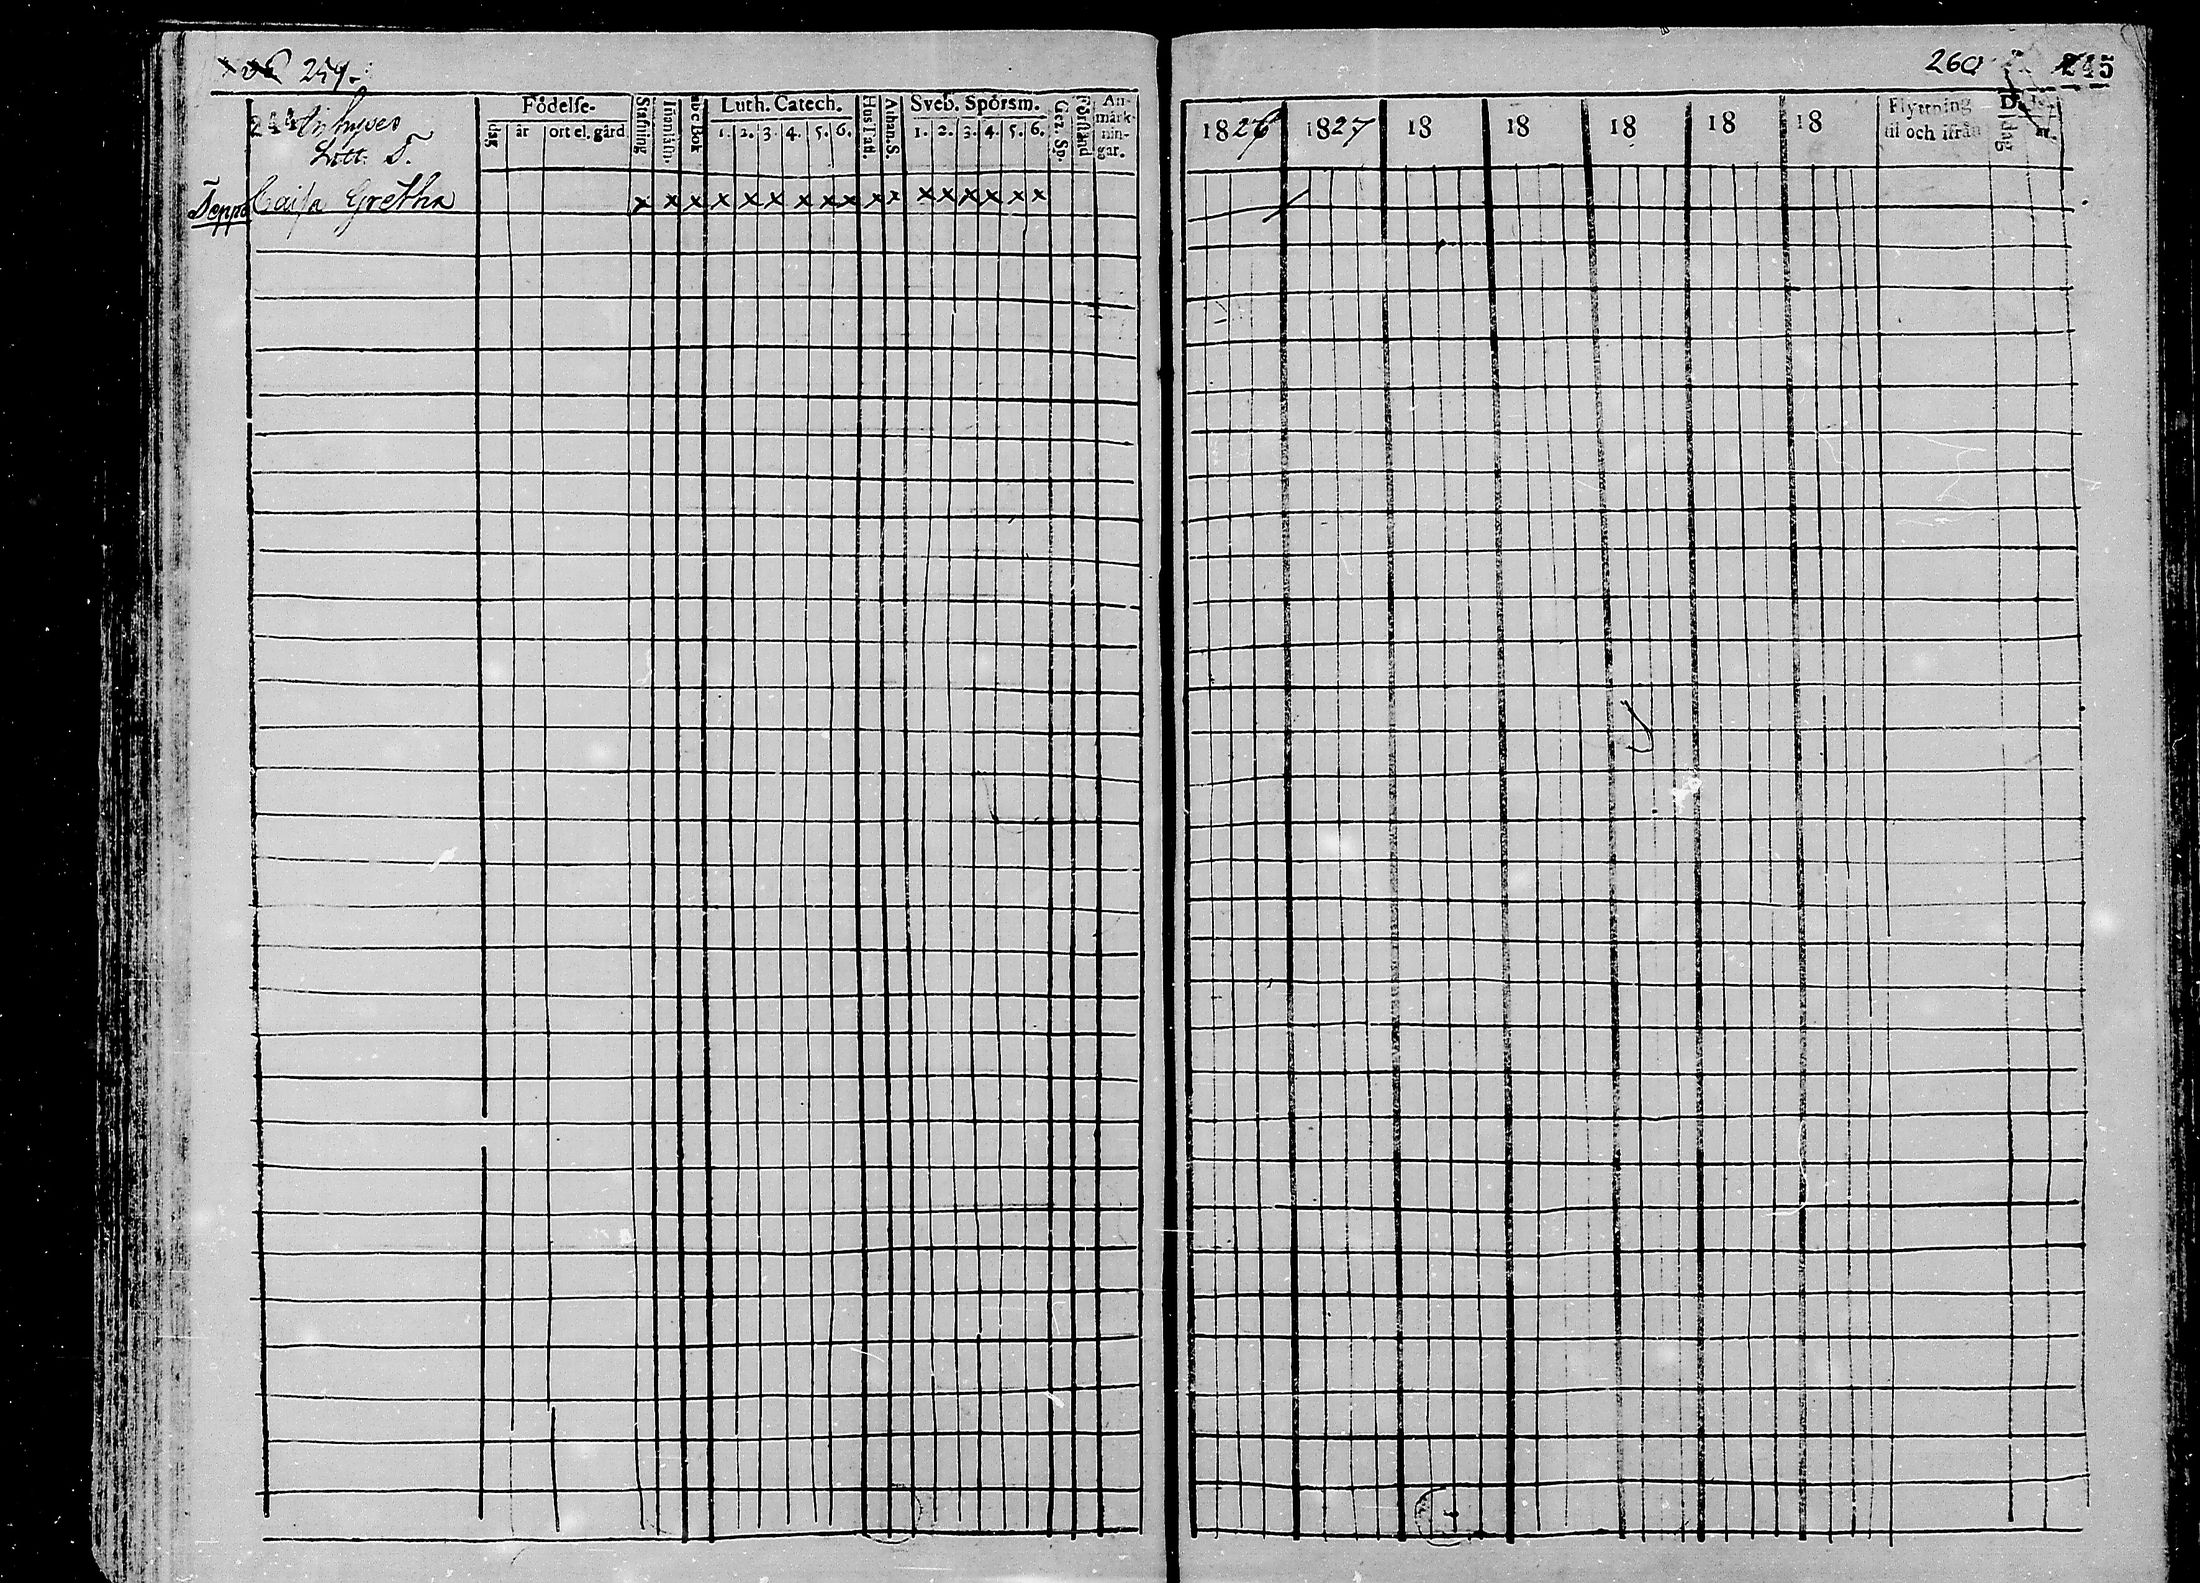 259.
244
Litt. T.
Födelse-
dag
år
ort el. gård
Stafning
Innanläsn.
abc Bok
Luth. Catech.
1. 2. 3. 4. 5. 6.
Hus Tafl.
Athan. S.
Sveb. Spörsm.
1. 2. 3. 4. 5. 6.
Ger. Sp.
Förstånd
An-
märk-
nin-
gar.
Teppo Caisa Gretha x x x x x x x x x x x x x x x x x
260 245
1826 1827 18 18 18 18 18
Flyttning
til och ifrån
dag